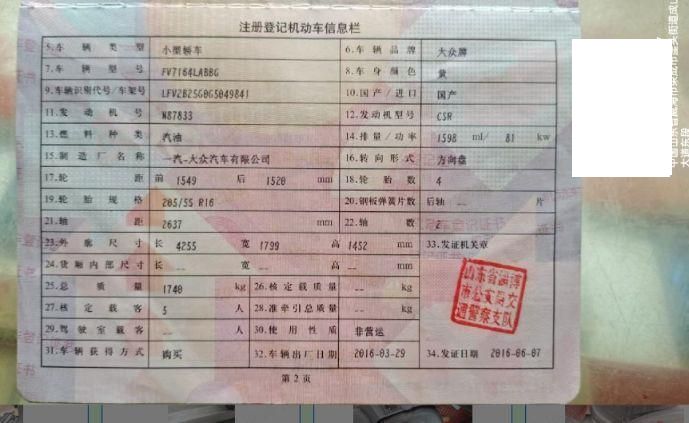 注册登记机动车信息栏
5.车辆类型 小型轿车 6.车辆品牌 大众牌
7.车辆型号 FV7164LABBG 8.车身颜色 黄
9.车辆识别代号/车架号 LFV2B25G0G5049841 10.国产/进口 国产
11.发动机号 N87833 12.发动机型号 CSR
13.燃料种类 汽油 14.排量/功率 1598 ml/ 81 kw
15.制造厂名称 一汽-大众汽车有限公司 16.转向形式 方向盘
17.轮距 前 1549 后 1520 mm 18.轮胎数 4
19.轮胎规格 205/55 R16 20.钢板弹簧片数 后轴 -- 片
21.轴距 2637 mm 22.轴数 2
23.外廓尺寸 长 4255 宽 1799 高 1452 mm 33.发证机关章
24.货厢内部尺寸 长 -- 宽 -- 高 -- mm
25.总质量 1740 kg 26.核定载质量 -- kg
27.核定载客 5 人 28.准牵引总质量 -- kg
29.驾驶室载客 -- 人 30.使用性质 非营运
31.车辆获得方式 购买 32.车辆出厂日期 2016-03-29 34.发证日期 2016-06-07
山东省淄博
市公安局交
通警察支队
第2页
大道东段